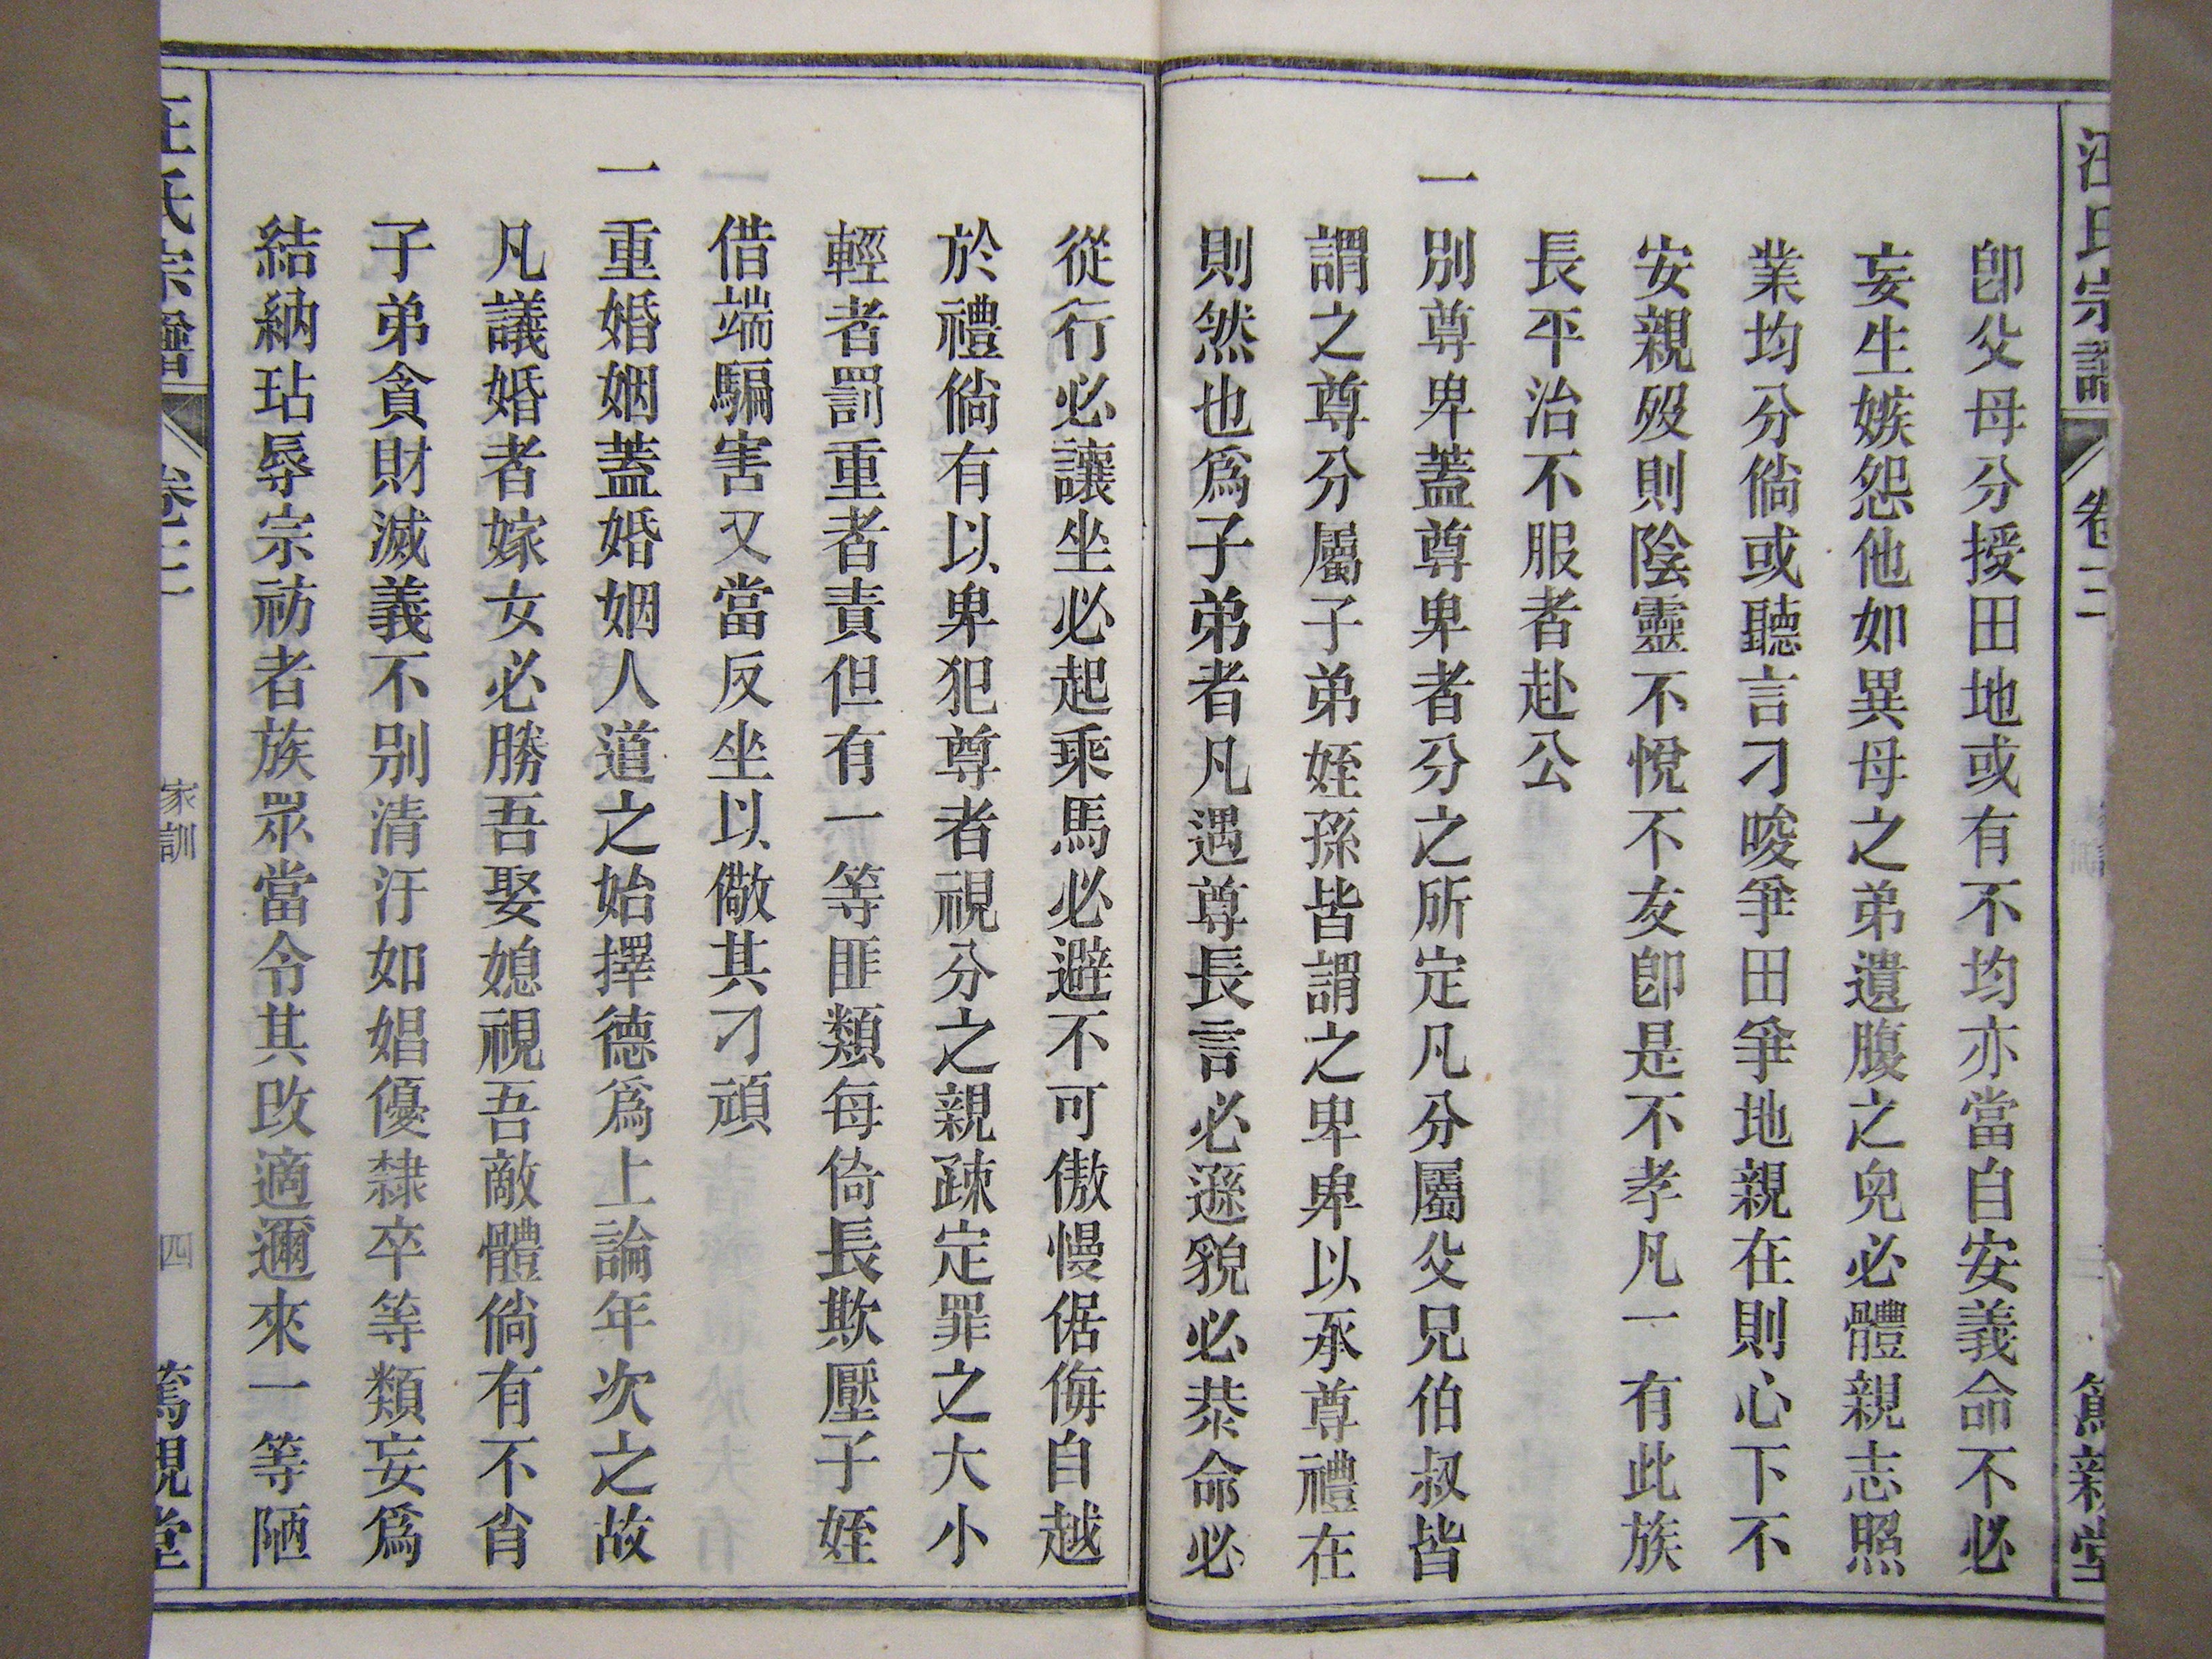 汪氏宗譜 卷二 篤親堂
卽父母分授田地或有不均亦當自安義命不必
妄生嫉怨他如異母之弟遺腹之兒必體親志照
業均分倘或聽言刁唆爭田爭地親在則心下不
安親歿則陰靈不悅不友卽是不孝凡一有此族
長平治不服者赴公
一別尊卑蓋尊卑者分之所定凡分屬父兄伯叔皆
謂之尊分屬子弟姪孫皆謂之卑卑以承尊禮在
則然也爲子弟者凡遇尊長言必遜貌必恭命必
從行必讓坐必起乘馬必避不可傲慢倨侮自越
於禮倘有以卑犯尊者視分之親疎定罪之大小
輕者罰重者責但有一等匪類每倚長欺壓子姪
借端騙害又當反坐以儆其刁頑
一重婚姻蓋婚姻人道之始擇德爲上論年次之故
凡議婚者嫁女必勝吾娶媳視吾敵體倘有不肖
子弟貪財滅義不別清汙如娼優隸卒等類妄爲
結納玷辱宗祊者族眾當令其改適邇來一等陋
汪氏宗譜 卷二 家訓 四 篤親堂